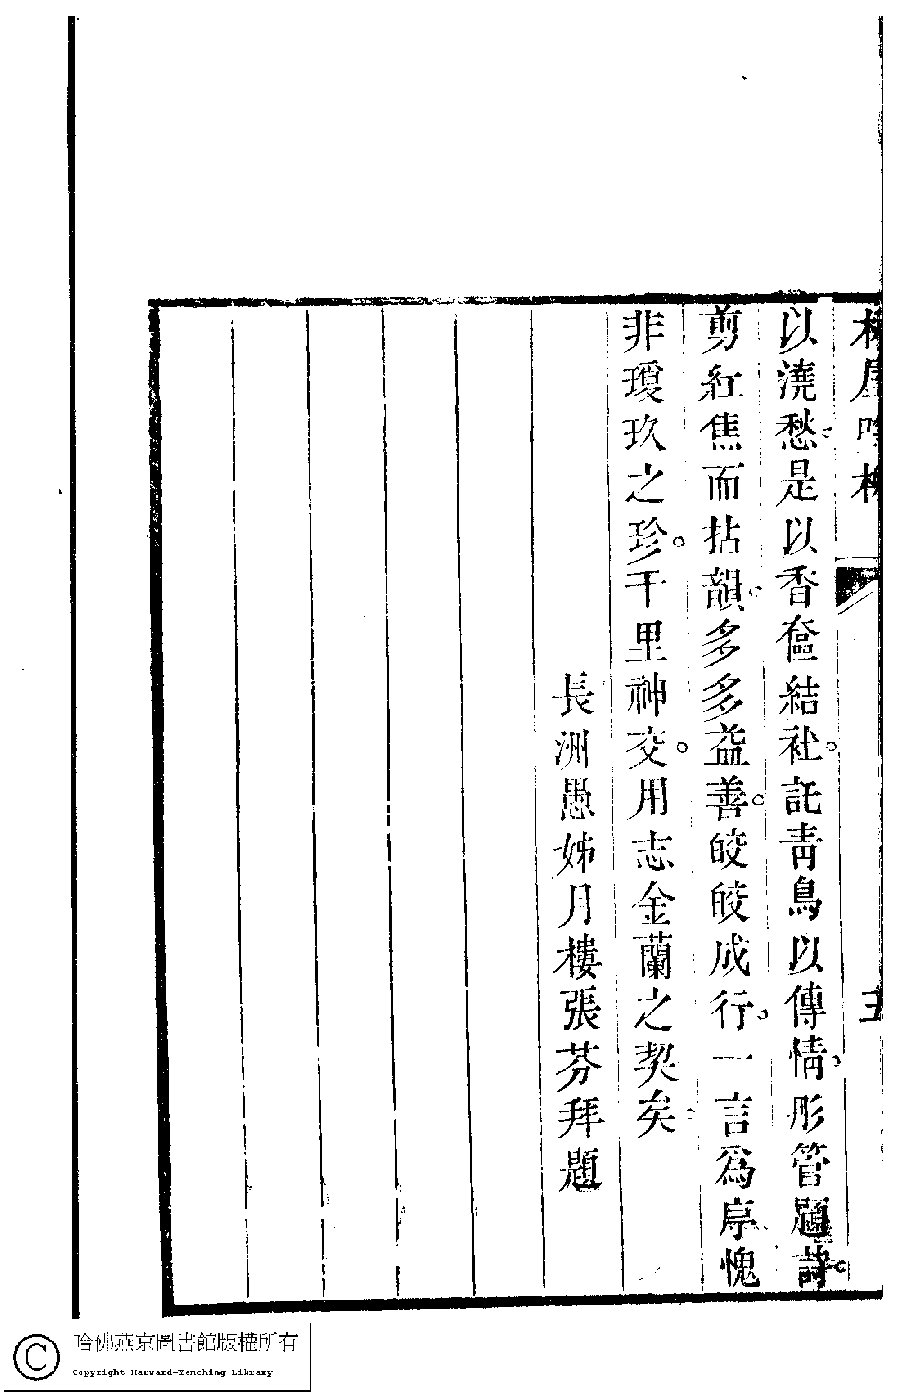 以澆愁是以香奩結社。託青鳥以傳情。彤管題詩。
剪紅焦而拈韻。多多益善。皎皎成行。一言爲序愧
非瓊玖之珍。千里神交。用志金蘭之契矣
長洲愚姊月樓張芬拜題
五
哈佛燕京圖書館版權所有
Copyright Harvard-Yenching Library